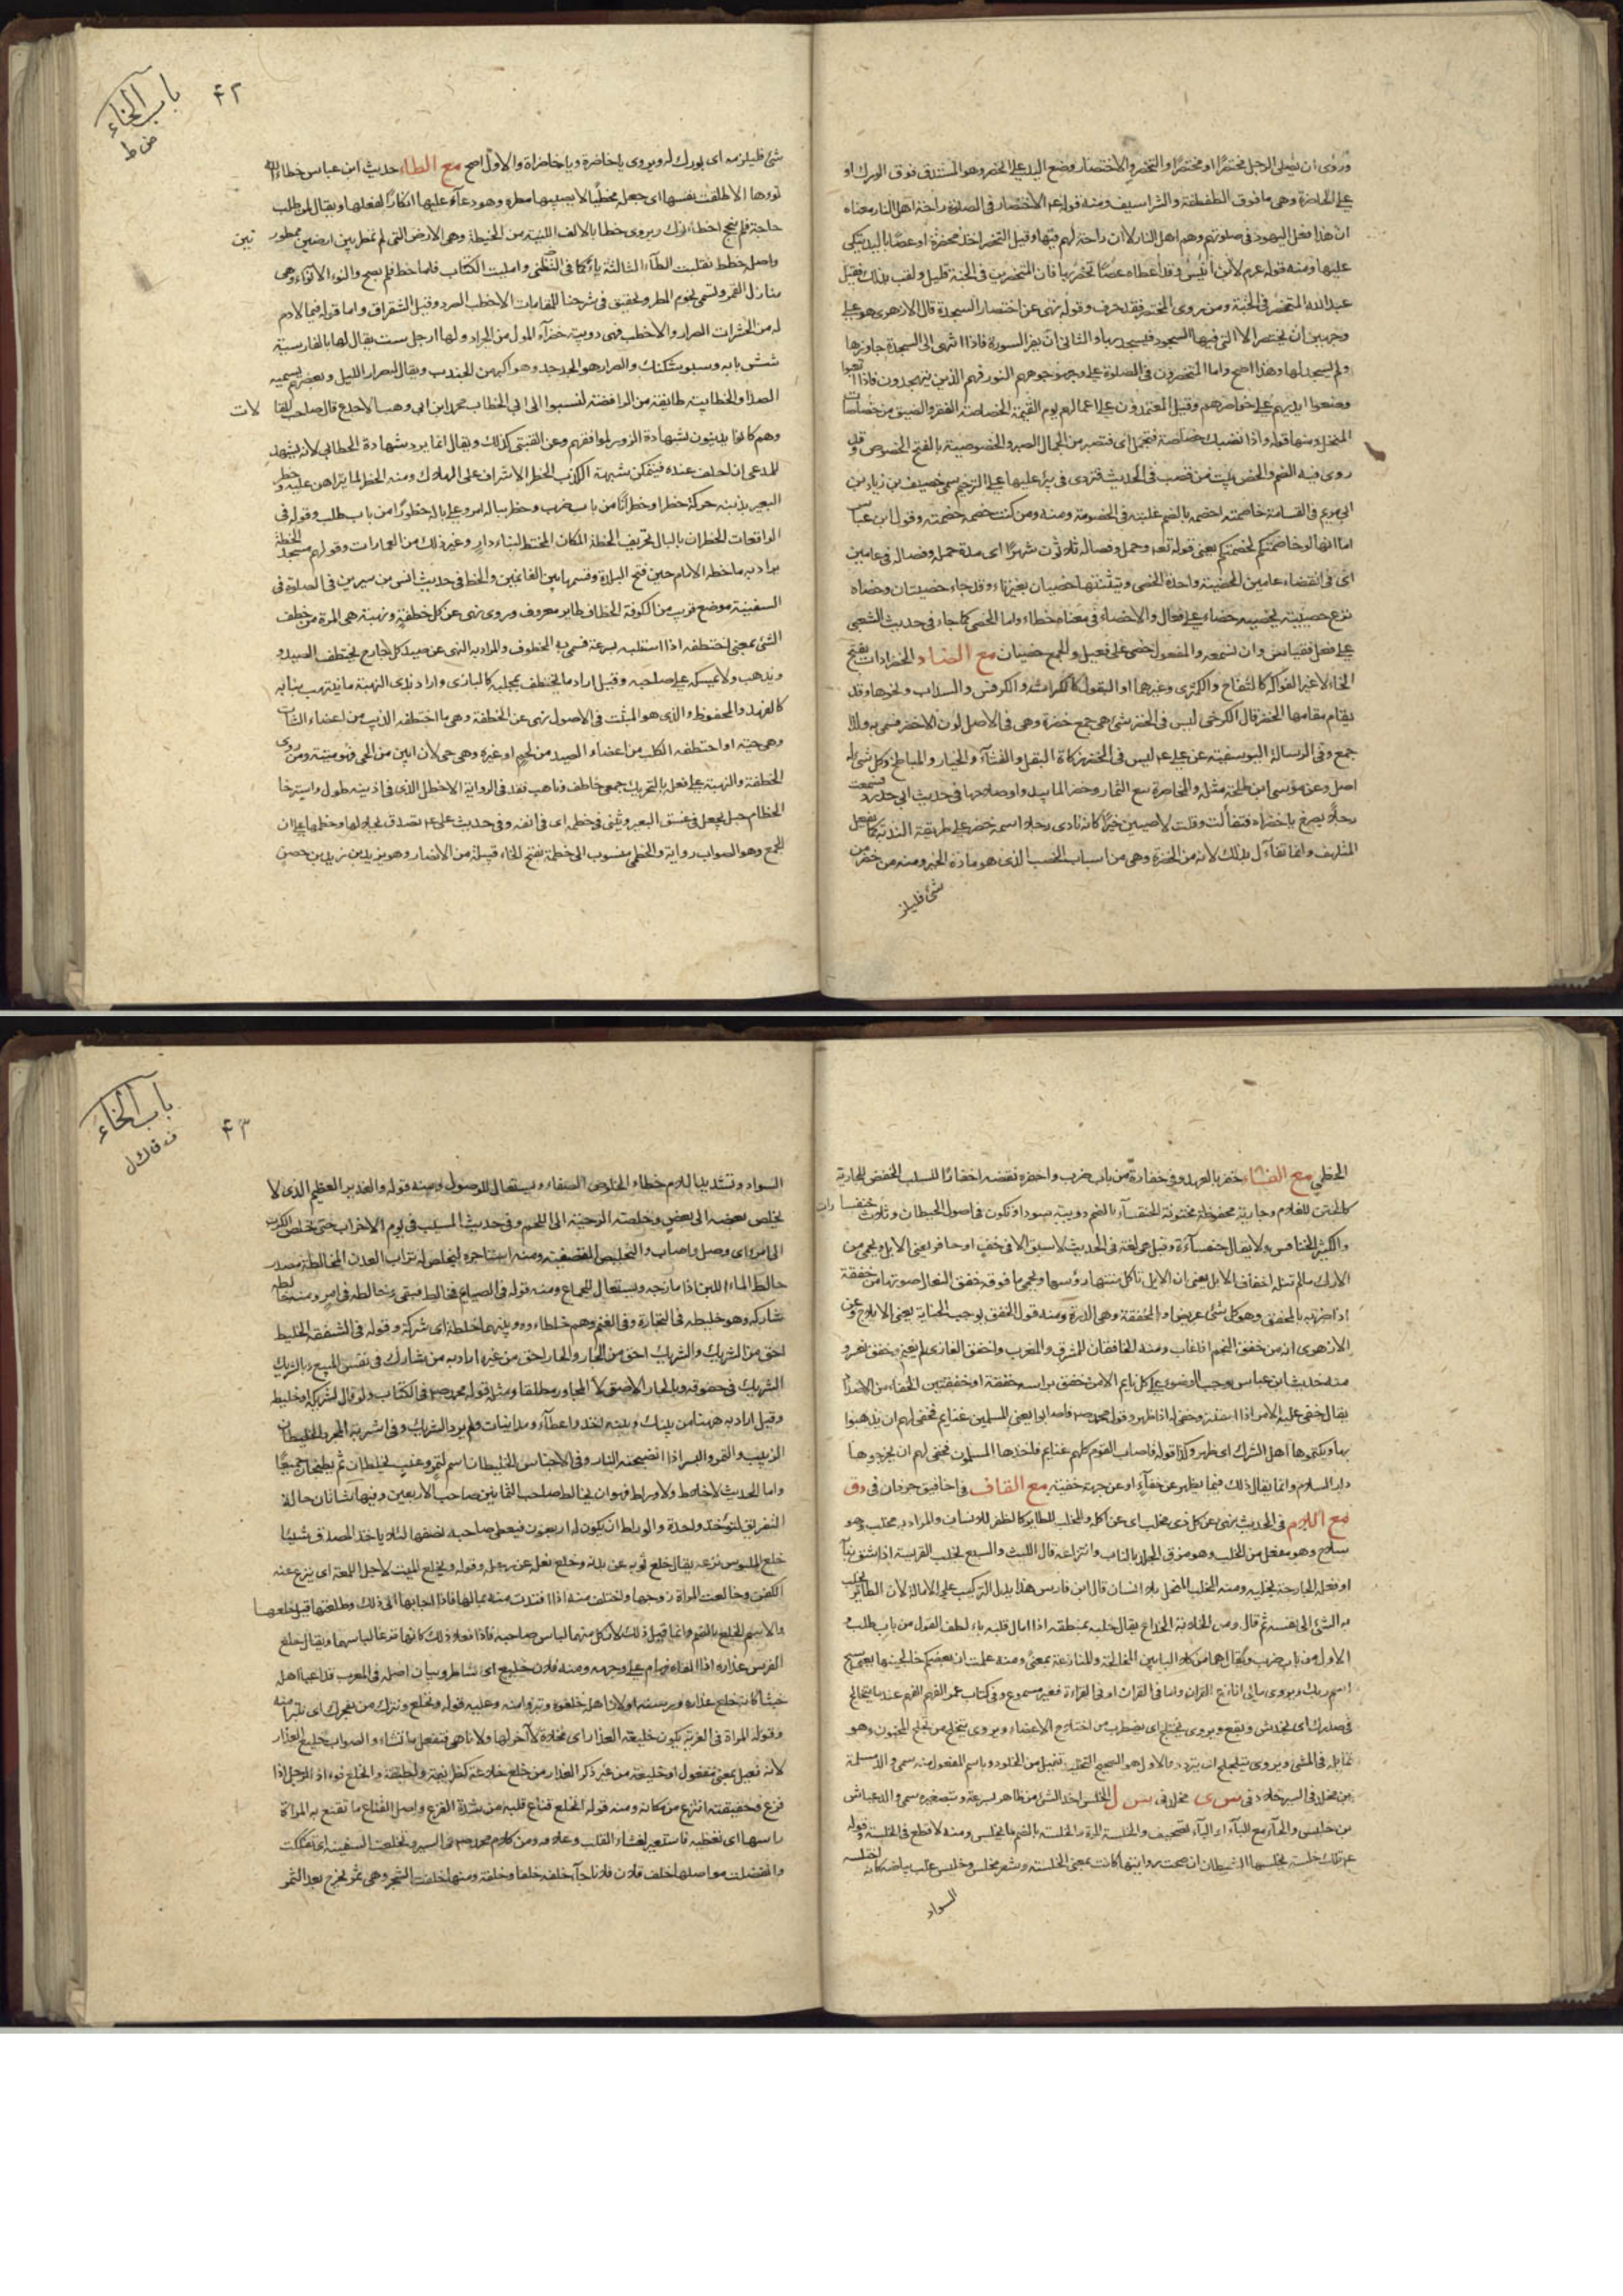 وروى ان يصلى الرجل مختصرا او متخصرا والتخصر والاختصار وضع اليد على الخصر وهو المستدق فوق الورك او
على الخاصرة وهى ما فوق الطفطفة والشراسيف ومنه قوله عم الاختصار فى الصلوة راحة اهل النار معناه
ان هذا فعل اليهود فى صلوتهم وهم اهل النار لا ان راحة لهم فيها وقيل التخصر اخذ مخصرة او عصا باليد يتكى
عليها ومنه قوله عم لابن انيس وقد اعطاه عصا تخصر بها فان المتخصرين فى الجنة قليل ولقب بذلك فقيل
عبد الله المتخصر فى الجنة ومن روى المختصر فقد حرف وقوله نهى عن اختصار السجدة قال الازهرى هو على
وجهين ان يختصر الاية التى فيها السجود فيسجد بها والثانى ان يقرا السورة فاذا انتهى الى السجدة جاوزها
ولم يسجد لها وهذا اصح واما المتخصرون فى الصلوة على وجوههم النور فهم الذين يتهجدون فاذا تعبوا
وضعوا ايديهم على خواصرهم وقيل المعتمدون على اعمالهم يوم القيمة الخصاصة الفقر والضيق من خصاصات
المنخل ومنها قوله واذا تصبك خصاصة فتجمل اى فتصبر من الجمال الصبر والخصوصية بالفتح الخصوص وقد
روى فيه الضم والخص بيت من قصب فى الحديث فتردى فى بئر عليها على الترخيم سمى خصيف بن زياد بن
ابى مريم فى القسامة خاصمته اخصمه بالضم غلبته فى الخصومة ومنه ومن كنت خصمه خصمته وقول ابن عباس
اما انها لو خاصمتكم لخصمتكم يعنى قوله تع وحمله وفصاله ثلاثون شهرا اى مدة حمله وفصاله فى عامين
اى فى انقضاء عامين الخصية واحدة الخصى وتثنيتها خصيان بغير تاء وقد جاء خصيتان وخصاه
نزع خصيتيه يخصيه خصاء على فعال والاخصاء فى معناه خطاء واما الخصى كما جاء فى حديث الشعبى
على فعل فقياس وان لم نسمعه والمفعول خصى على فعيل والجمع خصيان مع الضاد الخضراوات بفتح
الخاء لا غير الفواكه كالتفاح والكمثرى وغيرهما او البقول كالكراث والكرفس والسداب ونحوها وقد
يقام مقامها الخضر قال الكرخى ليس فى الخضر شئ هى جمع خضرة وهى فى الاصل لون الاخضر فسمى به ولذا
جمع وفى الرسالة اليوسفية عن على عم ليس فى الخضر زكاة البقل والقثاء والخيار والمباطخ وكل شئ له
اصل وعن موسى ابن طلحة مثله والمخاضرة بيع الثمار وخضر لما يبد واو صلاحها فى حديث ابى حدرد فسمعت
رجلا يصرخ يا خضراه فتفألت وقلت لاصيبن خيرا كانه نادى رجلا اسمه خضر على طريقة الندبة كما يفعل
المتلهف وانما تفاءل بذلك لانه من الخضرة وهى من اسباب الخصب الذى هو مادة الخير ومنه من خضر من
شئ فليلز
۴۲
باب الخاء
ض ط
شئ فليلزمه اى بورك له ويروى يا خاضرة ويا خاضراة والاول اصح مع الطاء حديث ابن عباس خطأ الله
نوءها الا طلقت نفسها اى جعله مخطئا لا يصيبها مطره وهو دعاء عليها انكارا لفعلها ويقال لمن طلب
حاجة فلم ينجح اخطأ نوءك ويروى خطا بالالف اللينة من الخطيطة وهى الارض التى لم تمطر بين ارضين ممطورتين
واصله خطط فقلبت الطاء الثالثة ياء كما فى التظنى واملبت الكتاب فاما خط فلم يصح والنوء الانواء وهى
منازل القمر وتسمى نجوم المطر وتحقيق فى شرحنا للمقامات الاخطب الصرد وقيل الشقراق واما قوله فيما لا دم
له من الحشرات الصرار والاخطب فهى دويبة خضراء اطول من الجراد ولها ارجل ست يقال لها بالفارسية
شش بايه وسبوشكنك والصرار هو الجدجد وهو اكبر من الجندب ويقال له صرار الليل وبعضهم يسميه
الصدا والخطابية طائفة من الرافضة نسبوا الى ابى الخطاب محمد ابن ابى وهب الاجدع قال صاحب المقالات
وهم كانوا يدينون بشهادة الزور لموافقيهم وعن القتبى كذلك ويقال انما يرد شهادة الخطابى لانه يشهد
للمدعى ان حلف عنده فيتمكن شبهة الكذب الخطر الاشراف على الهلاك ومنه الخطر لما يتراهن عليه وخطر
البعير بذنبه حركه خطرا وخطرانا من باب ضرب وخطر بباله امر وعلى باله خطورا من باب طلب وقوله فى
الواقعات الخطران بالبال تحريف الخطة المكان المختط لبناء دار وغير ذلك من العمارات وقولهم مسجد الخطة
يراد به ما خطه الامام حين فتح البلدة وقسمها بين الغانمين والخط فى حديث انس بن سيرين فى الصلوة فى
السفينة موضع قريب من الكوفة الخطاف طاير معروف ويروى نهى عن كل خطفة ونهبة هى المرة من خطف
الشئ بمعنى اختطفه اذا استلبه بسرعة فسمى به المخطوف والمراد به النهى عن صيد كل جارح يختطف الصيد و
ويذهب ولا يمسكه على صاحبه وقيل اراد ما يختطف بمخلبه كالبازى واراد بذى النهبة ما ينتهب بنابه
كالفهد والمحفوظ والذى هو المثبت فى الاصول نهى عن الخطفة وهى ما اختطفه الذيب من اعضاء الشاة
وهى حية او اختطفه الكلب من اعضاء الصيد من لحم او غيره وهى حى لان ابين من الحى فهو ميتة ومن روى
الخطفة والنهبة على فعلة بالتحريك جمعى خاطف وناهب فقد فى الرواية الاخطل الذى فى اذنيه طول واسترخا
الخطام حبل يجعل فى عنق البعير ويثنى فى خطمه اى فى انفه وفى حديث على عم تصدق بجلالها وخطمها على ان
الجمع وهو الصواب رواية والخطمى منسوب الى خطمة بفتح الخاء قبيلة من الانصار وهو يزيد بن زيد بن حصن
الخطمى مع الفاء خفر بالعهد وفى خفارة من باب ضرب واخفره نقضه اخفارا للسلب الخفض للجارية
كالختن للغلام وجارية مخفوضة مختونة الخنفساء بالضم دويبة سوداء تكون فى اصول الحيطان وثلاث خنفساوات
والكثير الخنافس ولا يقال خنفساءة وقيل هى لغة فى الحديث لا سبق الا فى خف او حافر يعنى الابل ويحمى من
الاراك ما لم تنله اخفاف الابل يعنى ان الابل تاكل منتهى رؤسها ويحمى ما فوقه خفق النعال صوتها من خفقه
اذا ضربه بالمخفق وهو كل شئ عريض او المخفقة وهى الدرة ومنه قول الخفق يوجب الجناية يعنى الايلاج وعن
الازهرى انه من خفق النجم اذا غاب ومنه الخافقان للمشرق والمغرب واخفق الغازى لم يغنم وخفق نعس و
منه حديث ابن عباس يوجب الوضوء على كل نايم الا من خفق براسه خفقة او خفقتين الخفاء من الاضداد
يقال خفى عليه الامر اذا استتر وخفى له اذا ظهر وقول محمد رحمه الله اصابوا يعنى المسلمين غنايم فخفى لهم ان يذهبوا
بها ويكتموها اهل الشرك اى ظهر وكذا قوله فاصاب القوم كلهم غنايم فاخذها المسلمون فخفى لهم ان يخرجوها
دار السلام وانما يقال ذلك فيما يظهر عن خفاء او عن جهة خفية مع القاف فى اخافيق جرذان فى وق
مع اللام فى الحديث نهى عن كل ذى مخلب اى عن اكله والمخلب للطاير كالظفر للانسان والمراد به مخلب هو
سلاح وهو مفعل من الخلب وهو مزق الجلد بالناب وانتزاعه قال الليث والسبع يخلب الفريسة اذا شق
او فعله الجارحة بمخلبه ومنه المخلب المنجل بلا اسنان قال ابن فارس هذا يدل التركيب على الامالة لان الطائر يخلب
به الشئ الى نفسه ثم قال ومن الخلابة الخداع يقال خلبه بمنطقه اذا امال قلبه بالطف القول من باب طلب و
الاول من باب ضرب ويقال هما من كلا البابين المخالجة والمنازعة بمعنى ومنه علمت ان بعضكم خالجنيها يعنى سبح
اسم ربك ويروى مالى انازع القران واما فى القران او فى القراءة فغير مسموع وفى كتاب عمر الفهم الفهم عندما يتخالج
فى صدرك اى يخدش ويقع ويروى يختلج اى يضطرب من اختلاج الاعضاء ويروى يتخلج من تخلج المجنون وهو
تمايله فى المشى ويروى يتلجلج اى يتردد والاول هو الصحيح التخليد تفعيل من الخلود وباسم المفعول منه سمى والد مسلمة
بن مخلد فى السير خلاد فى س ى مخلد فى س ل الخلس اخذ الشئ من ظاهر بسرعة وبتصغيره سمى والد عباش
بن خليس والحاء مع الباء او الياء تصحيف والخلسة المرة والخلسة بالضم ما يختلس ومنه لا قطع فى الخلسة وقوله
عم تلك خلسة يختلسها الشيطان ان صحت روايتها كانت بمعنى الخلسة وشعر مخلس وخليس غلب بياضه كانه اختلسه
السواد
۴۳
باب الخاء
ف ق ل
السواد وتشديد اللام خطاء الخلوص الصفاء ويستعمل للوصول ومنه قوله والغدير العظيم الذى لا
يخلص بعضه الى بعض وخلصته الرحية الى اللحم وفى حديث السلب فى يوم الاحزاب حتى خلص الكرب
الى امراى وصل واصاب والتخليص التصفية ومنه استاجره ليخلص له تراب المعدن المخالطة مصدر
خالط الماء اللبن اذا مازجه ويستعمل للجماع ومنه قوله فى الصيام فخالط فبقى وخالطه فى امر ومنه خالطه
شاركه وهو خليطه فى التجارة وفى الغنم وهم خلطاءه وبينهما خلطة اى شركة وقوله فى الشفعة الخليط
احق من الشريك والشريك احق من الجار والجار احق من غيره اراد به من شاركك فى نفس المبيع وبالشريك
الشريك فى حقوقه وبالجار الملاصق لا المجاور مطلقا ومثله قوله محمد رحمه الله فى الكتاب ولو قال لشريكه او خليطه
وقيل اراد به ههنا من بينك وبينه اخذ واعطاء ومداينات ولم يرد الشريك وفى اشربة المجرد الخليطان
الزبيب والتمر والبسر اذا انضجته النار وفى الاجناس الخليطان اسم لتمر وعنب يخلطان ثم يطبخان جميعا
واما الحديث لا خلاط ولا وراط فهو ان يخالط صاحب الثمانين صاحب الاربعين وفيها شاتان حالة
التفريق لتؤخذ واحدة والوراط ان يكون له اربعون فيعطى صاحبه نصفها لئلا ياخذ المصدق شيئا
خلع الملبوس نزعه يقال خلع ثوبه عن بدنه وخلع نعله عن رجله وقوله ويخلع الميت لاجل اللمعة اى ينزع عنه
الكفن وخالعت المراة زوجها واختلعت منه اذا افتدت منه بمالها فاذا اجابها الى ذلك وطلقها قيل خلعها
والاسم الخلع بالضم وانما قيل ذلك لان كلا منهما لباس صاحبه فاذا فعلا ذلك كانهما نزعا لباسهما ويقال خلع
الفرس عذاره اذا القاه فهام على وجهه ومنه فلان خليع اى شاطر وبيان اصله فى المعرب قد اعيا اهله
خبثا كانه خلع عذاره ورسنه او لان اهله خلعوه وتبرؤا منه وعليه قوله ونخلع ونترك من يفجرك اى نتبرأ منه
وقوله المراة فى الغربة يكون خليعة العذار اى مخلاة لا آمر لها ولا ناهى فتفعل ما تشاء والصواب خليع العذار
لانه فعيل بمعنى مفعول او خليعة من غير ذكر العذار من خلع خلاعة كظريفة ولطيفة وانخلع فؤاد الرجل اذا
فزع وحقيقته انتزع من مكانه ومنه قوله انخلع قناع قلبه من شدة الفزع واصل القناع ما تقنع به المراة
راسها اى تغطيه فاستعير لغشاء القلب وغلافه ومن كلام محمد رحمه الله فى السير وتخلعت السفينة اى تفككت
وانفصلت مواصلها خلف فلان فلانا جاء خلفه خلفا وخلفة ومنها خلفة الشجر وهى ثمر يخرج بعد الثمر